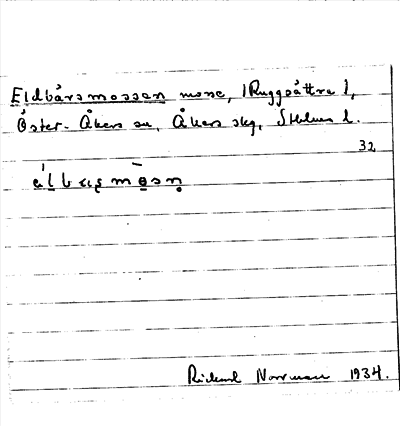 Eldbärsmossen mosse, (Ruggsättra),
Öster-Åkers sn, Åkers skg, Sthlms l.
32
Rickard Norrman 1934.